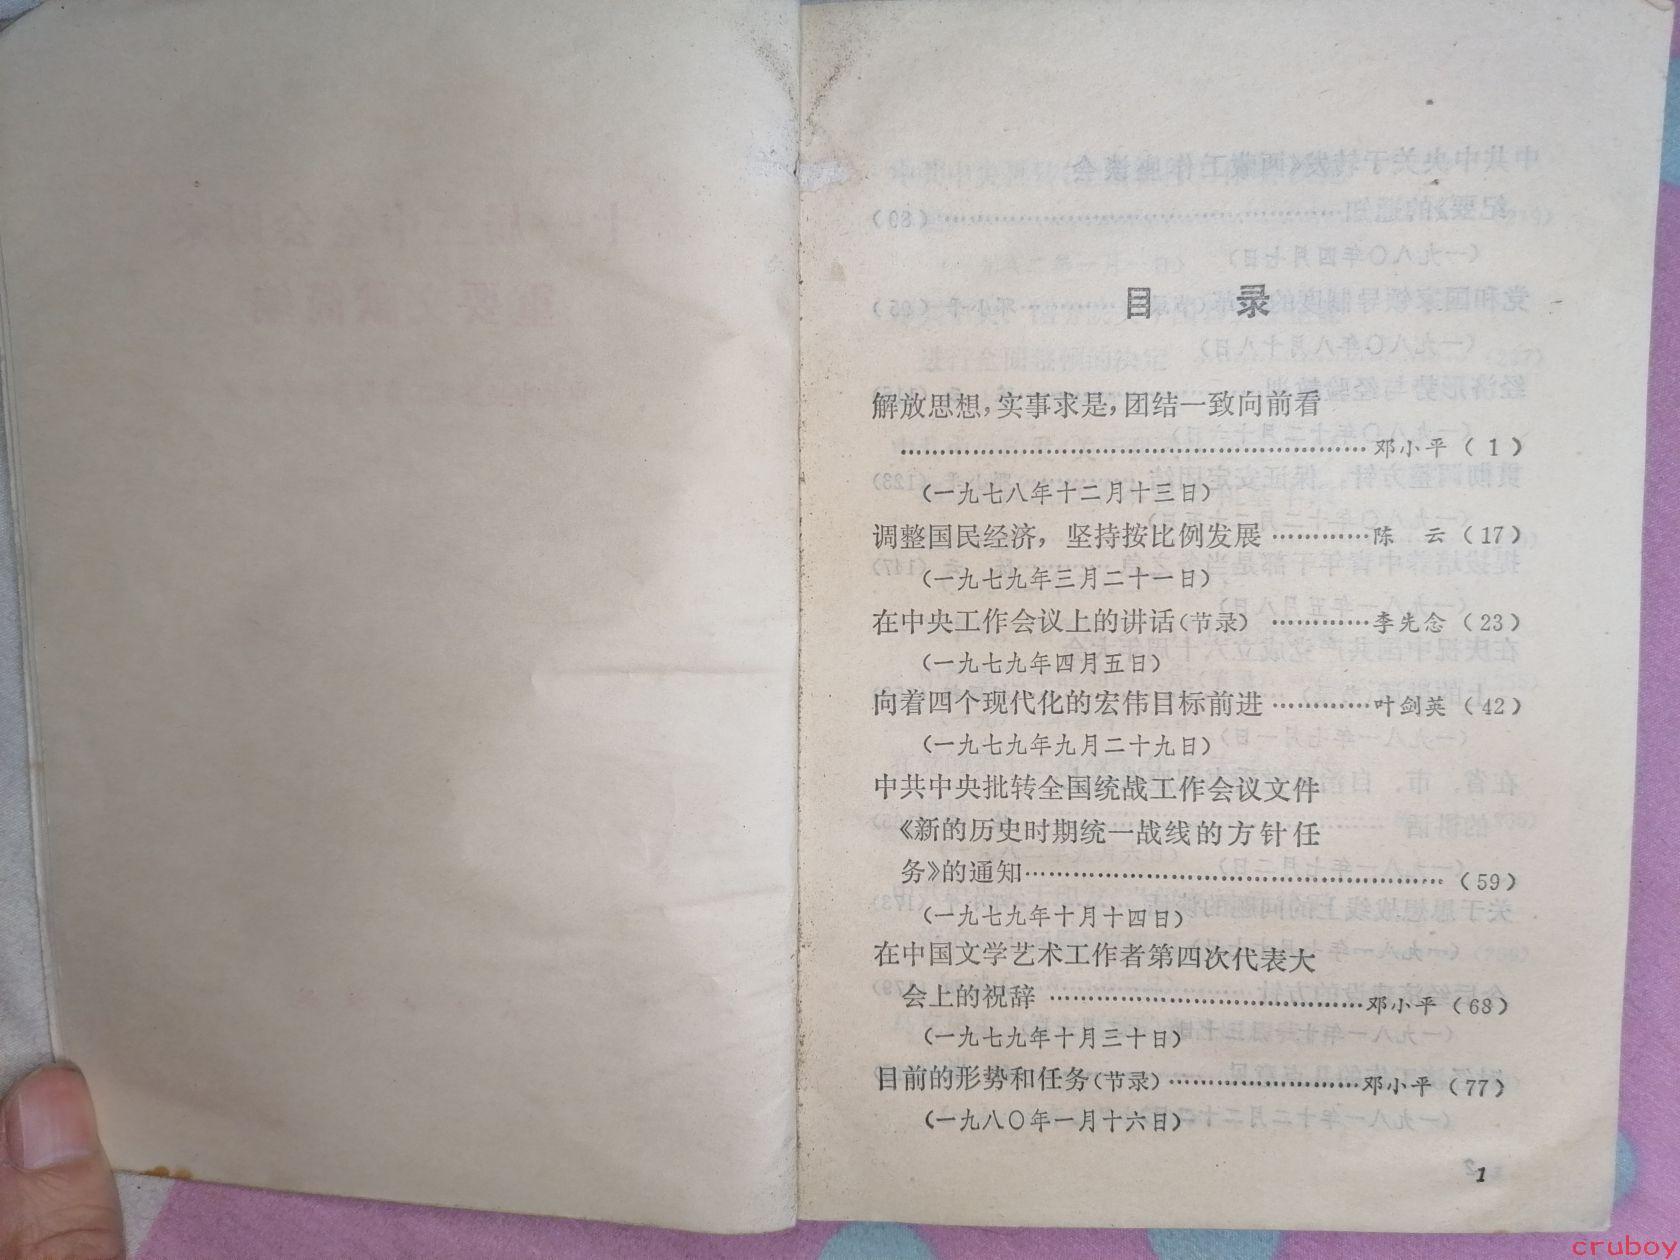 目　录
解放思想，实事求是，团结一致向前看
……………………………………………邓小平（1）
（一九七八年十二月十三日）
调整国民经济，坚持按比例发展…………陈　云（17）
（一九七九年三月二十一日）
在中央工作会议上的讲话（节录）…………李先念（23）
（一九七九年四月五日）
向着四个现代化的宏伟目标前进…………叶剑英（42）
（一九七九年九月二十九日）
中共中央批转全国统战工作会议文件
《新的历史时期统一战线的方针任
务》的通知……………………………………………（59）
（一九七九年十月十四日）
在中国文学艺术工作者第四次代表大
会上的祝辞………………………………邓小平（68）
（一九七九年十月三十日）
目前的形势和任务（节录）……………………邓小平（77）
（一九八〇年一月十六日）
1
cruboy